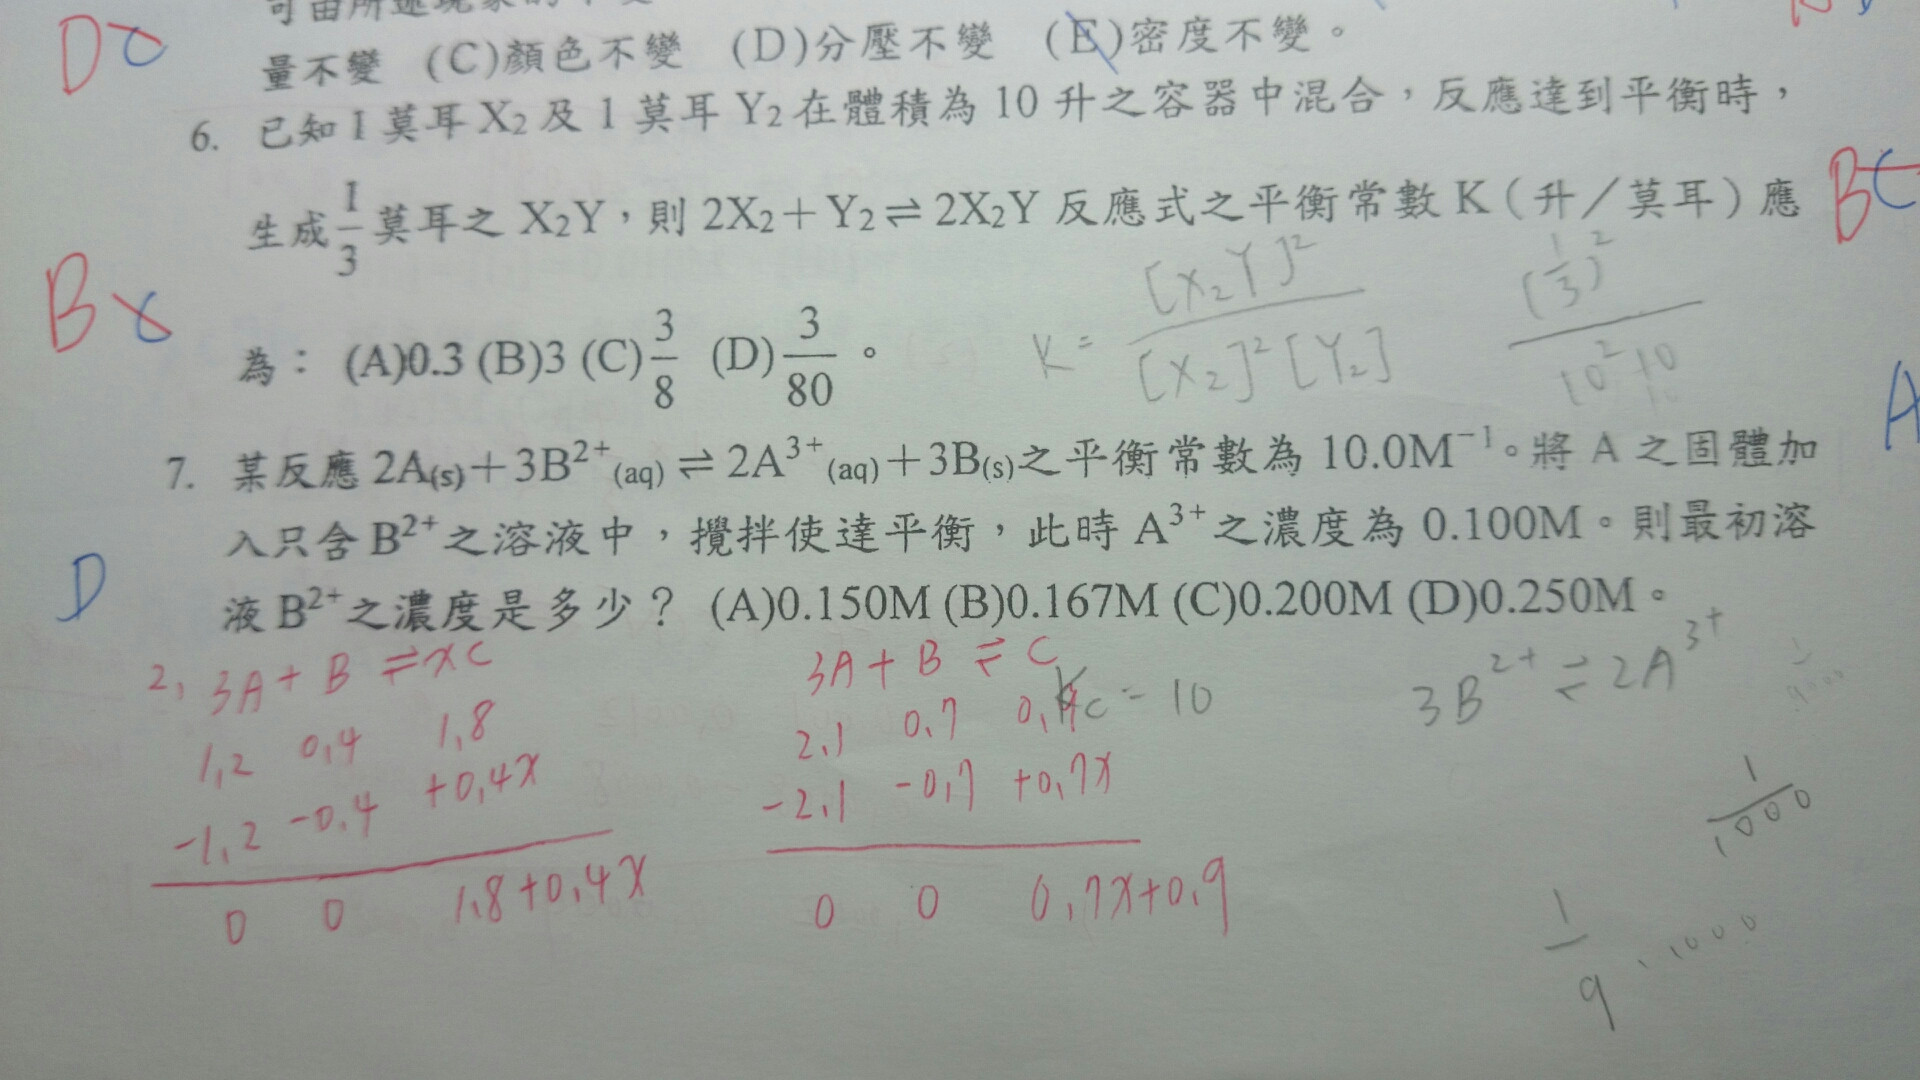 可由所述現象的不變
D
量不變 (C)顏色不變 (D)分壓不變 (E)密度不變。
6. 已知1莫耳X₂及1莫耳Y₂在體積為10升之容器中混合,反應達到平衡時,
生成1/3莫耳之X₂Y,則2X₂+Y₂⇌2X₂Y反應式之平衡常數K(升/莫耳)應
BC
B
為: (A)0.3 (B)3 (C)3/8 (D)3/80。
K=[X₂Y]²/[X₂]²[Y₂]
(1/3)²/10² 10
A
7. 某反應2A(s)+3B²⁺(aq)⇌2A³⁺(aq)+3B(s)之平衡常數為10.0M⁻¹。將A之固體加
入只含B²⁺之溶液中,攪拌使達平衡,此時A³⁺之濃度為0.100M。則最初溶
D
液B²⁺之濃度是多少? (A)0.150M (B)0.167M (C)0.200M (D)0.250M。
2, 3A+B⇌xC
1,2 0,4 1,8
-1,2 -0,4 +0,4x
0 0 1,8+0,4x
3A+B⇌C
2,1 0,7 0,9
-2,1 -0,7 +0,7x
0 0 0,7x+0,9
Kc=10
3B²⁺⇌2A³⁺
1/1000
1/9 . 1000